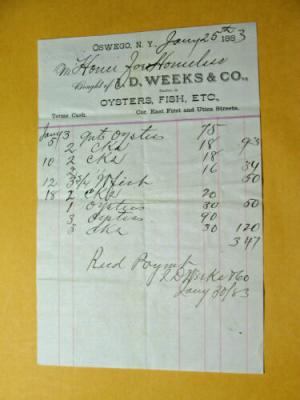 OSWEGO, N. Y. Jany 25th 1883
M Home for Homeless
Bought of I. D. WEEKS & CO.,
OYSTERS, FISH, ETC.,
Terms Cash. Cor. East First and Utica Streets.
Jany 3 qts Oysters 75
5 2 cks 18 93
10 2 cks 18
2 16 34
12 3½ fish 50
18 2 cks 20
1 Oysters 30 50
3 Oysters 90
3 cks 30 120
347
Recd Paymt
I D Weeks & Co
Jany 30/83